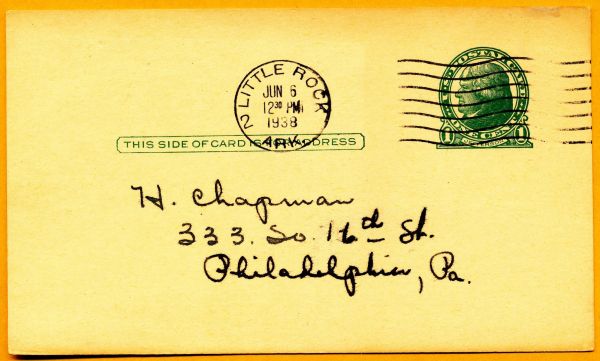 2 LITTLE ROCK
JUN 6
12 30 PM
1938
ARK.
U.S. POSTAGE
1 ONE CENT 1
JEFFERSON
THIS SIDE OF CARD IS FOR ADDRESS
H. Chapman
333. So. 16th St.
Philadelphia, Pa.